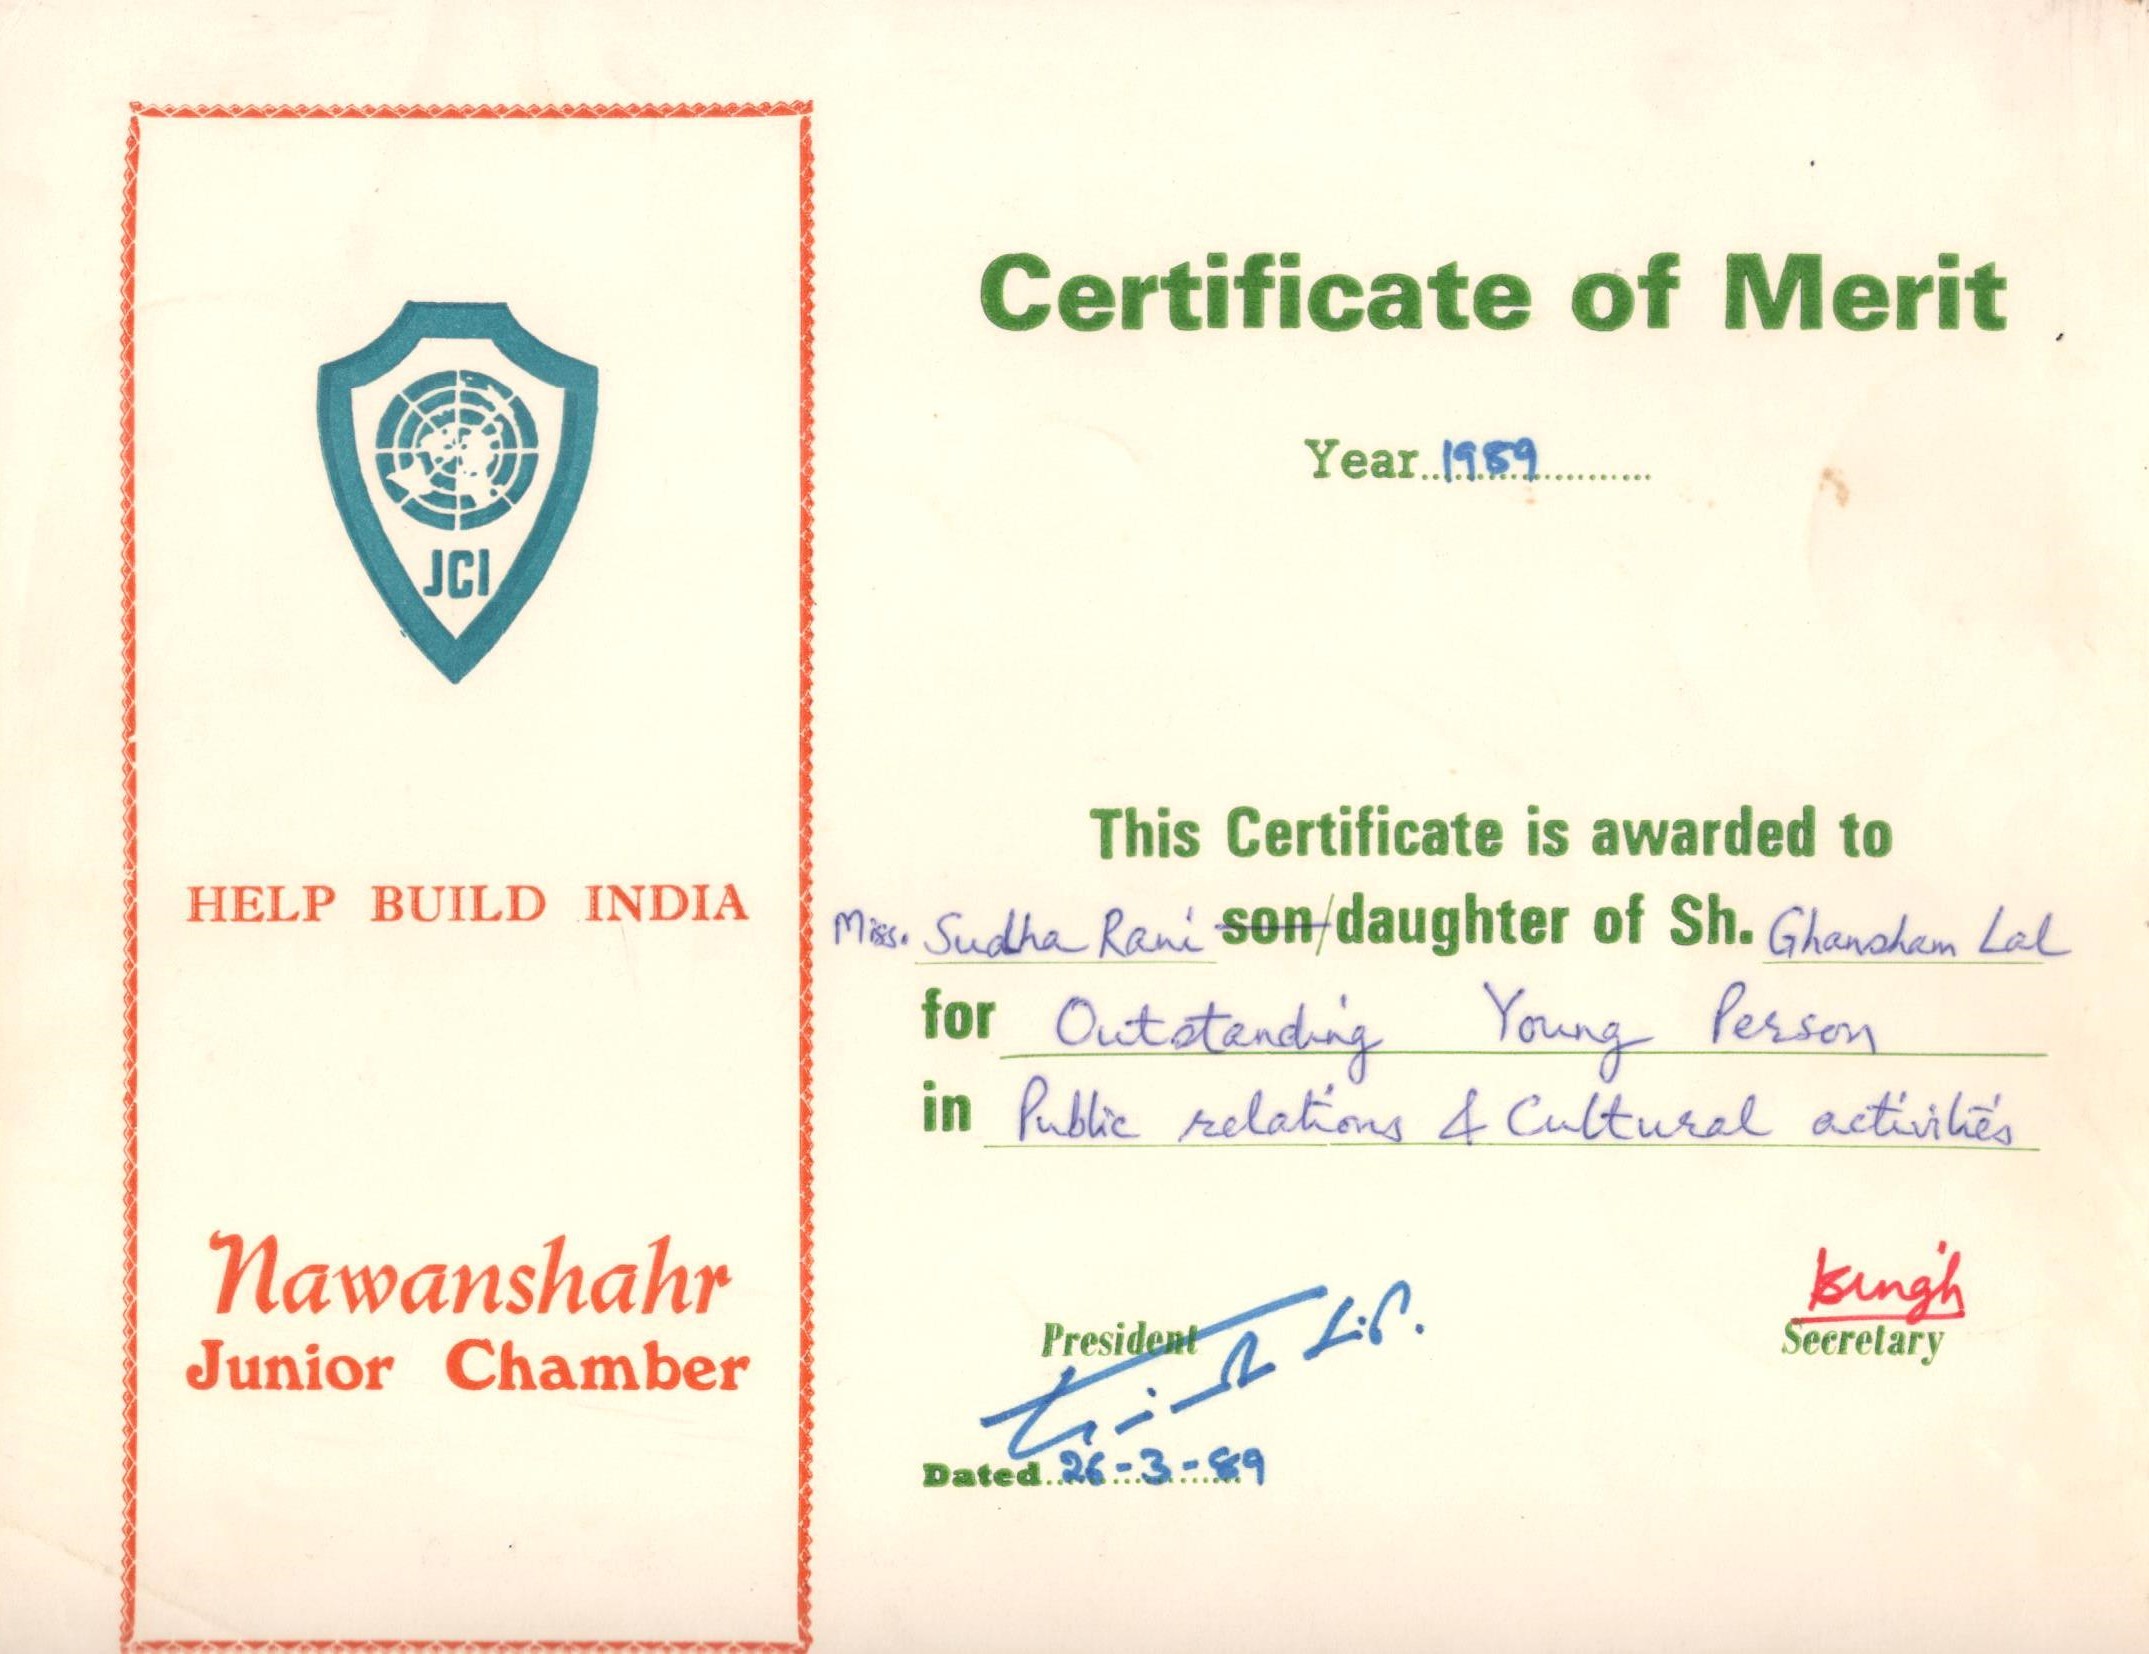 JCI
HELP BUILD INDIA
Nawanshahr
Junior Chamber
Certificate of Merit
Year 1989
This Certificate is awarded to
Miss. Sudha Rani son/daughter of Sh. Ghansham Lal
for Outstanding Young Person
in Public relations & Cultural activities
President
Singh
Secretary
Dated 26-3-89